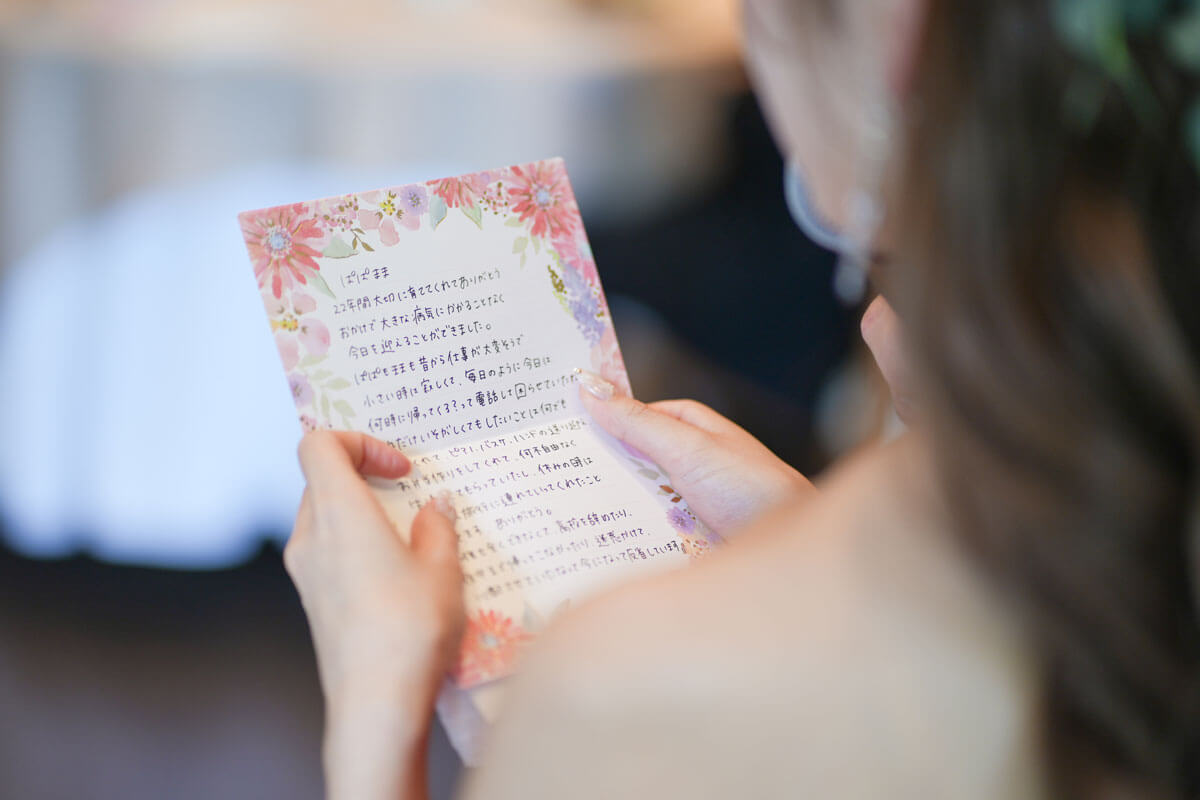 ぱぱまま
22年間大切に育ててくれてありがとう
おかげで大きな病気にかかることなく
今日を迎えることができました。
ぱぱもままも昔から仕事が大変そうで
小さい時は寂しくて、毎日のように今日は
何時に帰ってくる?って電話して困らせていたね
だけいそがしくてもしたいことは何でも
れて、ピアノ、バスケ、ハンドの送り迎え
お弁当作りをしてくれて、何不自由なく
てもらっていたし、休みの日は
に連れていってくれたこと
ありがとう。
できなくて、高校を辞めたり、
帰ってこなかったり、迷惑かけて、
させていたなって今になって反省しています